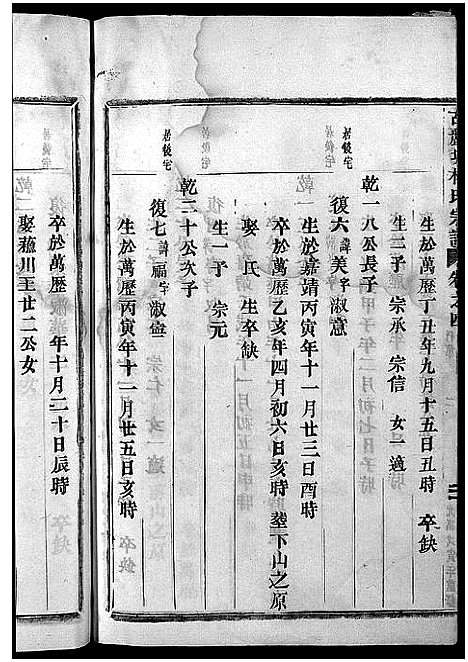 生於萬歷丁丑年九月十五日丑時 卒缺
生二子 宗承 宗信 女一適
乾一八公長子
居後宅
復六諱美字淑意
生於嘉靖丙寅年十一月廿三日酉時
卒於萬歷乙亥年四月初六日亥時 塟下山之原
娶 氏 生卒缺
生一子 宗元
乾二十公次子
居後宅
復七諱福字淑
生於萬歷丙寅年十一月廿五日亥時 卒缺
卒於萬歷 年十月二十日辰時 卒缺
娶蘓川王廿二公女